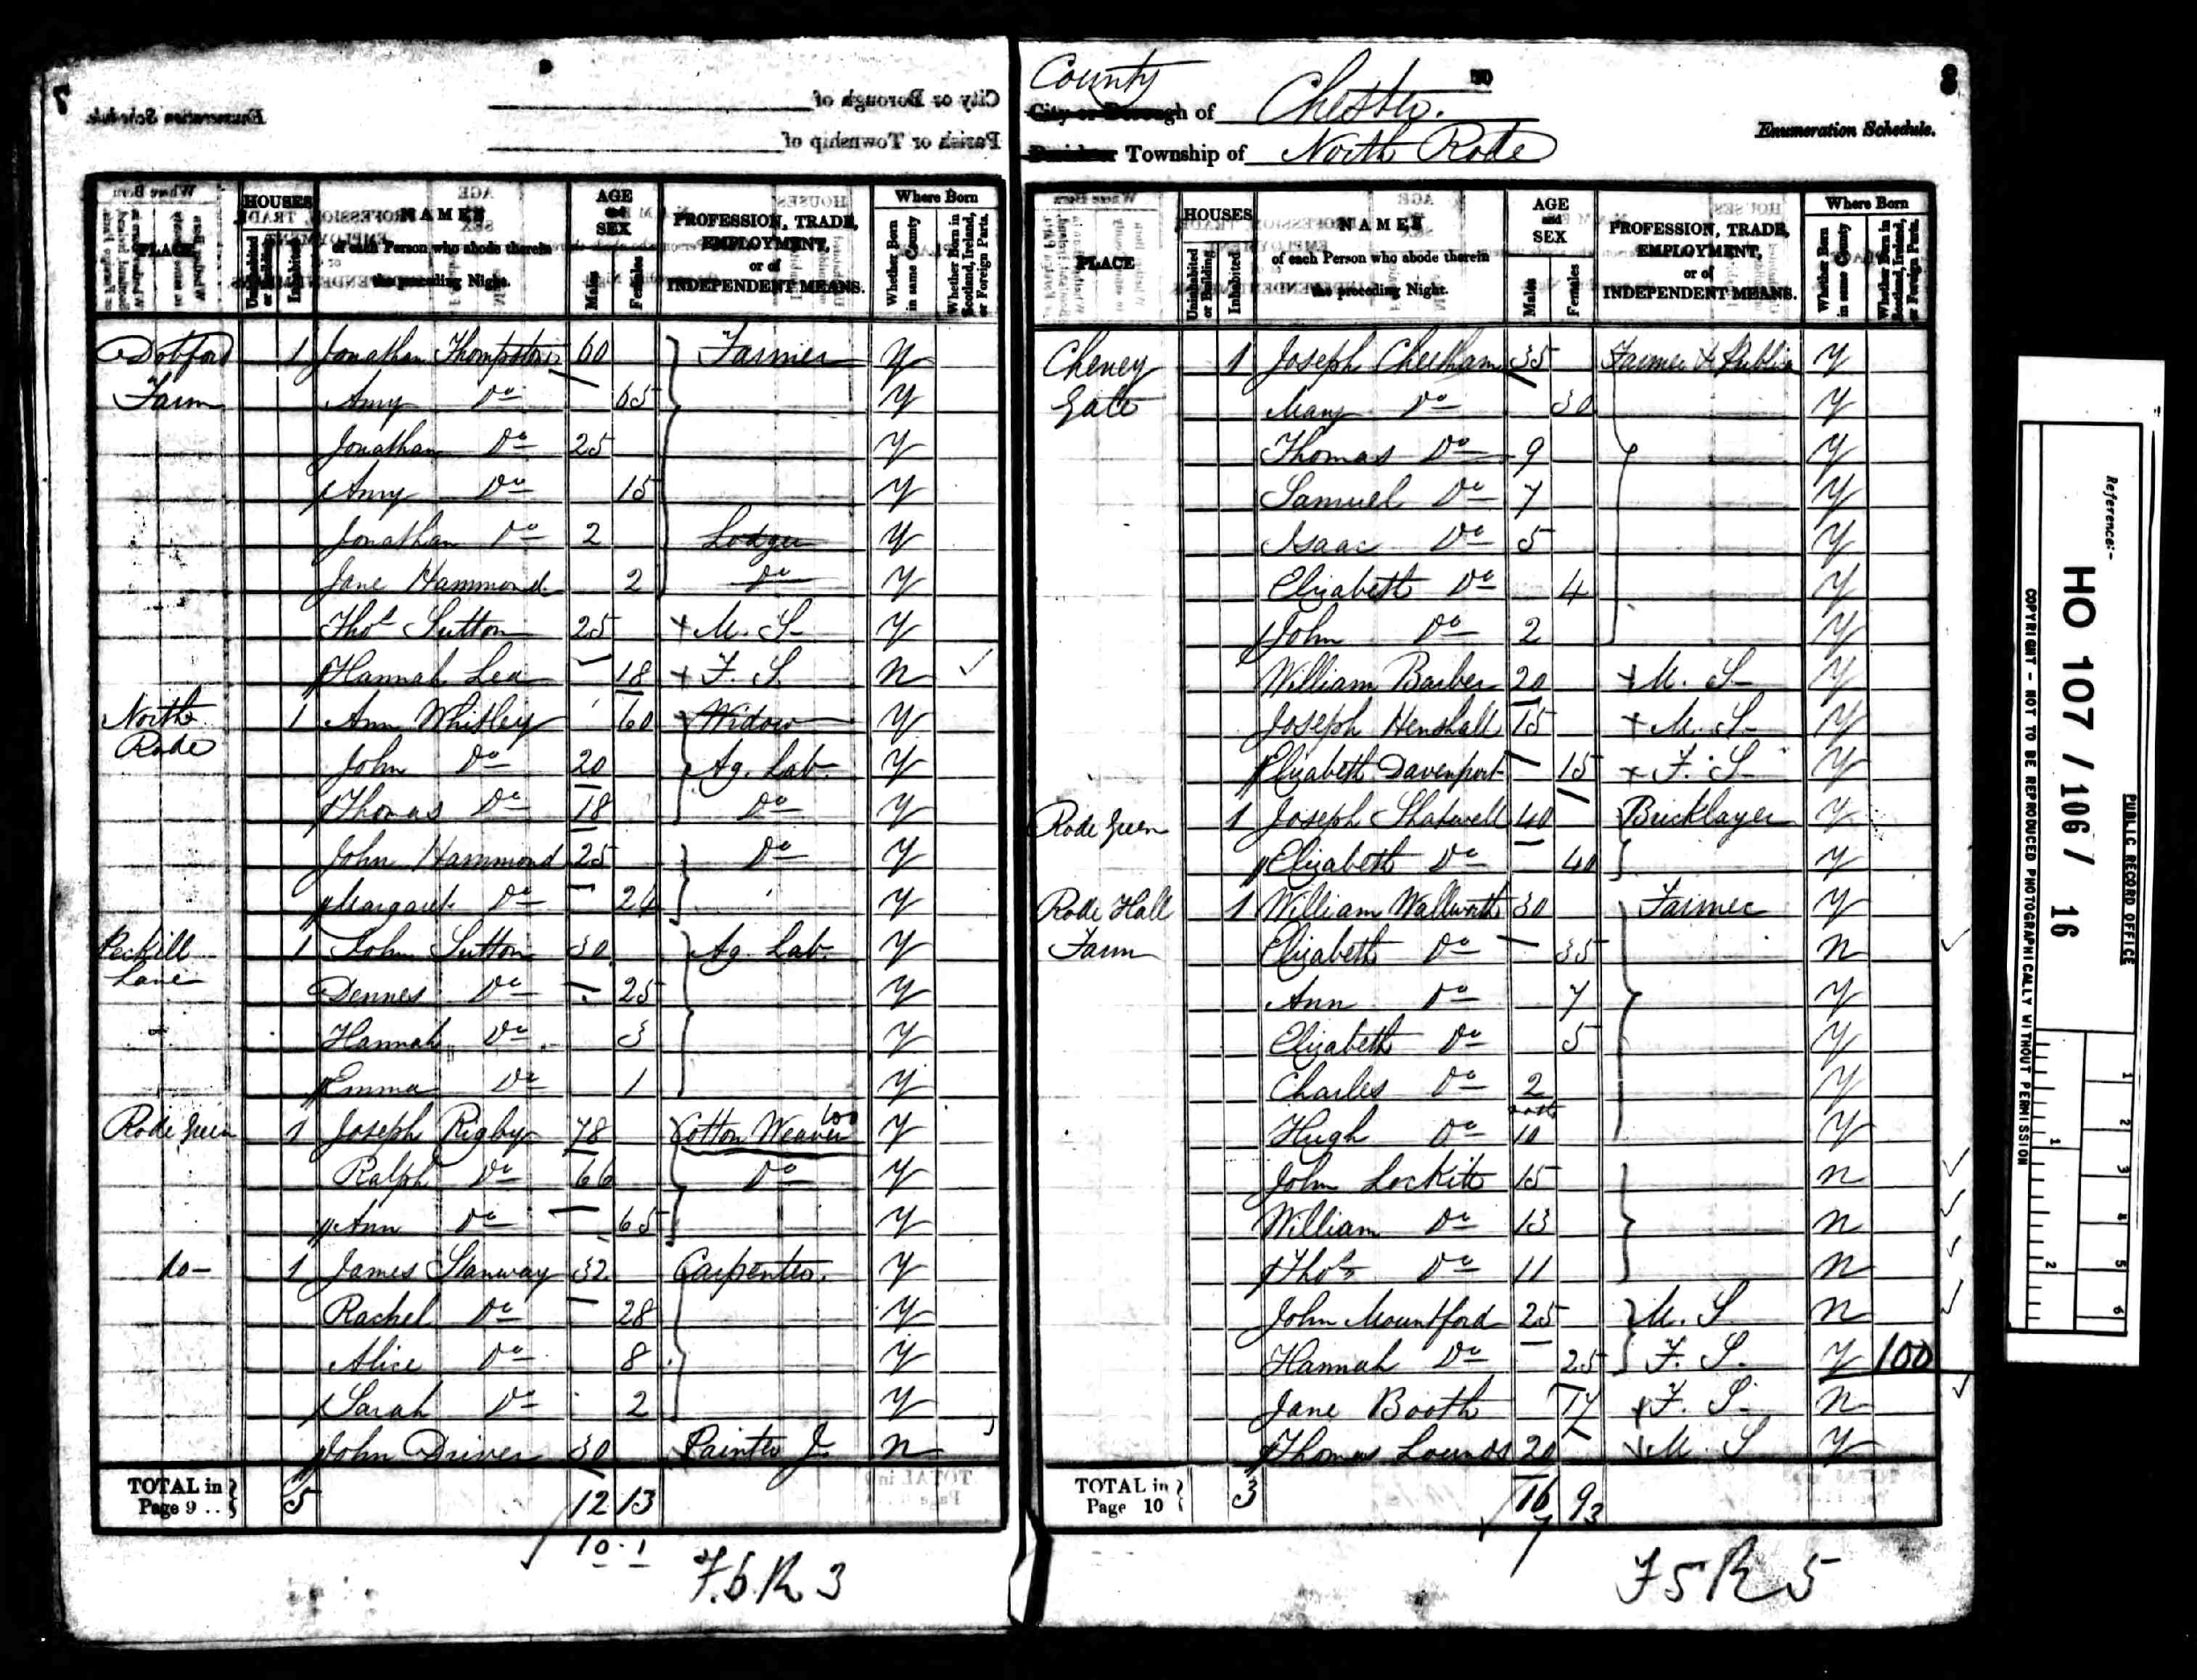 7
Enumeration Schedule.
City or Borough of
Parish or Township of
PLACE
HOUSES
Uninhabited or Building
Inhabited
NAMES
of each Person who abode therein
the preceding Night.
AGE
and
SEX
Males
Females
PROFESSION, TRADE,
EMPLOYMENT,
or of
INDEPENDENT MEANS.
Where Born
Whether Born in same County
Whether Born in Scotland, Ireland, or Foreign Parts.
1 Jonathan 60 Farmer Y
Farm Amy Do 65 Y
Jonathan Do 25 Y
Amy Do 15 Y
Jonathan Do 2 Lodger Y
Jane Hammond 2 Do Y
Thos Sutton 25 M. S Y
Hannah Lea 18 F. S N
North 1 Ann Whitley 60 Widow Y
Rode
John Do 20 Ag. Lab. Y
Thomas Do 18 Do Y
John Hammond 25 Do Y
Margaret Do 24 Y
Peckill 1 John Sutton 30 Ag. Lab. Y
Lane
Dennes Do 25 Y
Hannah Do 3 Y
Emma Do 1 Y
Rode Green 1 Joseph Rigby 78 Cotton Weaver Y
Ralph Do 66 Do Y
Ann Do 65 Y
Do 1 James Stanway 32 Carpenter. Y
Rachel Do 28 Y
Alice Do 8 Y
Sarah Do 2 Y
John Driver 30 Painter J. N
TOTAL in
Page 9 .. 5 12 13
10 1
F. 6. R 3
County
8
City or Borough of Chester.
Enumeration Schedule.
Parish or Township of North Rode
PLACE
HOUSES
Uninhabited or Building
Inhabited
NAMES
of each Person who abode therein
the preceding Night.
AGE
and
SEX
Males
Females
PROFESSION, TRADE,
EMPLOYMENT,
or of
INDEPENDENT MEANS.
Where Born
Whether Born in same County
Whether Born in Scotland, Ireland, or Foreign Parts.
Cheney 1 Joseph Cheetham 35 Farmer & Y
Gate Mary Do 30 Y
Thomas Do 9 Y
Samuel Do 7 Y
Isaac Do 5 Y
Elizabeth Do 4 Y
John Do 2 Y
William Barber 20 M. S Y
Joseph Henshall 15 M. S Y
Elizabeth Davenport 15 F. S Y
Rode Green 1 Joseph 40 Bricklayer Y
Elizabeth Do 40 Y
Rode Hall 1 William Wallworth 30 Farmer Y
Farm Elizabeth Do 35 N
Ann Do 7 Y
Elizabeth Do 5 Y
Charles Do 2 Y
Hugh Do 10 Y
John Lockitt 15 N
William Do 13 N
Thos Do 11 N
John Mountford 25 M. S N
Hannah Do 25 F. S. Y 100
Jane Booth 17 F. S. N
Thomas Lounds 20 M. S Y
TOTAL in
Page 10 3 16 9
7 3
F 5 R 5
Reference:-
HO 107 / 106 / 16
PUBLIC RECORD OFFICE
COPYRIGHT - NOT TO BE REPRODUCED PHOTOGRAPHICALLY WITHOUT PERMISSION
1 2 3 4 5 6
1 2